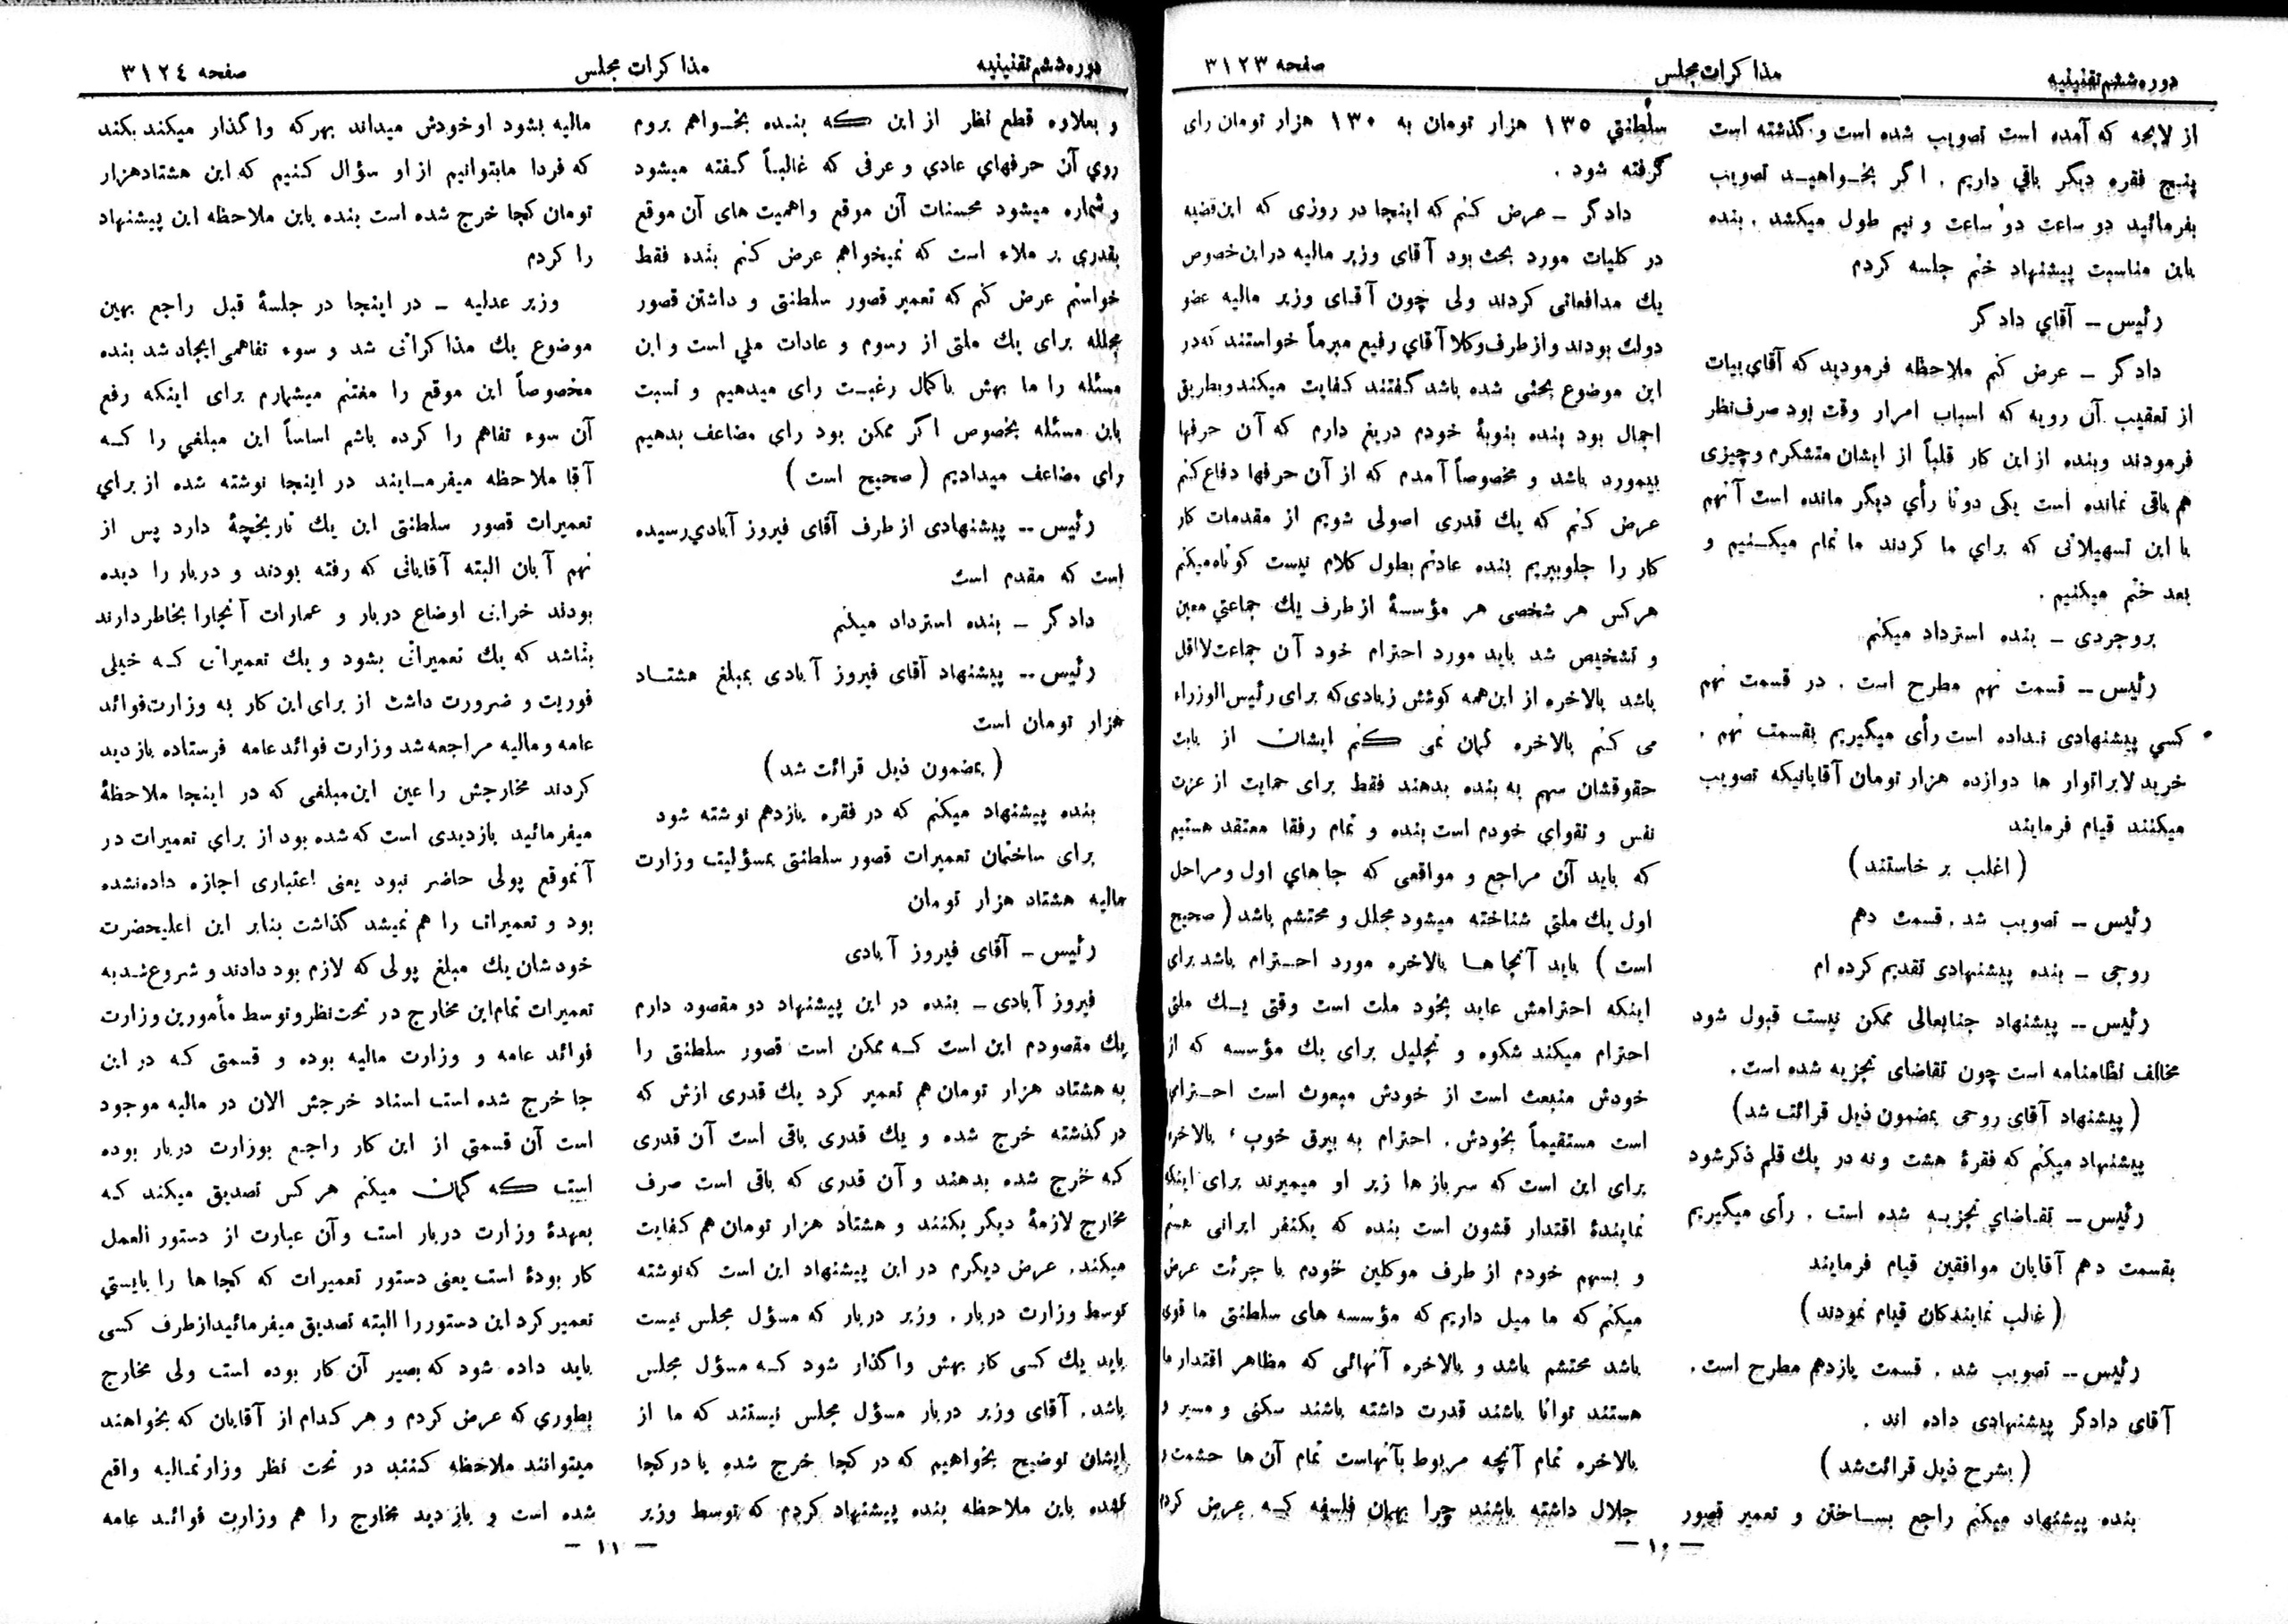 دوره ششم تقنینیه
مذاکرات مجلس
صفحه ۳۱۲۳
از لایحه که آمده است تصویب شده است و گذشته است
پنج فقره دیگر باقی داریم . اگر بخواهید تصویب
بفرمائید دو ساعت دو ساعت و نیم طول میکشد . بنده
باین مناسبت پیشنهاد ختم جلسه کردم
رئیس – آقای دادگر
دادگر – عرض کنم ملاحظه فرمودید که آقای بیات
از تعقیب آن رویه که اسباب امرار وقت بود صرف‌نظر
فرمودند وبنده از این کار قلباً از ایشان متشکرم و چیزی
هم باقی نمانده است یکی دوتا رأی دیگر مانده است آنهم
با این تسهیلاتی که برای ما کردند ما تمام میکنیم و
بعد ختم میکنیم .
بروجردی – بنده استرداد میکنم
رئیس – قسمت نهم مطرح است . در قسمت نهم
کسی پیشنهادی نداده است رأی میگیریم بقسمت نهم .
خرید لابراتوار ها دوازده هزار تومان آقایانیکه تصویب
میکنند قیام فرمایند
( اغلب بر خاستند )
رئیس – تصویب شد . قسمت دهم
روحی – بنده پیشنهادی تقدیم کرده ام
رئیس – پیشنهاد جنابعالی ممکن نیست قبول شود
مخالف نظامنامه است چون تقاضای تجزیه شده است .
( پیشنهاد آقای روحی بمضمون ذیل قرائت شد )
پیشنهاد میکنم که فقرهٔ هشت و نه در یك قلم ذکر شود
رئیس – تقاضای تجزیه شده است . رأی میگیریم
بقسمت دهم آقایان موافقین قیام فرمایند
( غالب نمایندگان قیام نمودند )
رئیس – تصویب شد . قسمت یازدهم مطرح است .
آقای دادگر پیشنهادی داده اند .
( بشرح ذیل قرائت شد )
بنده پیشنهاد میکنم راجع بساختن و تعمیر قصور
سلطنتی ۱۳۵ هزار تومان به ۱۳۰ هزار تومان رای
گرفته شود .
دادگر – عرض کنم که اینجا در روزی که این قضیه
در کلیات مورد بحث بود آقای وزیر مالیه در این خصوص
یك مدافعاتی کردند ولی چون آقای وزیر مالیه عضو
دولت بودند و از طرف وکلا آقای رفیع مبرماً خواستند که در
این موضوع بحثی شده باشد گفتند کفایت میکند و بطریق
اجمال بود بنده بنوبهٔ خودم دریغ دارم که آن حرفها
بیمورد باشد و مخصوصاً آمدم که از آن حرفها دفاع کنم
عرض کنم که یك قدری اصولی شویم از مقدمات کار
کار را جلو ببریم بنده عادتم بطول کلام نیست کوتاه میکنم
هرکس هر شخصی هر مؤسسهٔ از طرف یك جماعتی معین
و تشخیص شد باید مورد احترام خود آن جماعت لااقل
باشد بالاخره از این همه کوشش زیادی که برای رئیس الوزراء
می کنم بالاخره گمان نمی کنم ایشان از بابت
حقوقشان سهم به بنده بدهند فقط برای حمایت از عزت
نفس و تقوای خودم است بنده و تمام رفقا معتقد هستیم
که باید آن مراجع و مواقعی که جاهای اول و مراحل
اول یك ملتی شناخته میشود مجلل و محتشم باشد ( صحیح
است ) باید آنجا ها بالاخره مورد احترام باشد برای
اینکه احترامش عاید بخود ملت است وقتی یك ملتی
احترام میکند شکوه و تجلیل برای یك مؤسسه که از
خودش منبعث است از خودش مبعوث است احترامی
است مستقیماً بخودش . احترام به بیرق خوب بالاخره
برای این است که سرباز ها زیر او میمیرند برای اینکه
نمایندهٔ اقتدار قشون است بنده که یکنفر ایرانی هستم
و بسهم خودم از طرف موکلین خودم با جرئت عرض
میکنم که ما میل داریم که مؤسسه های سلطنتی ما قوی
باشد محتشم باشد و بالاخره آنهائی که مظاهر اقتدار ما
هستند توانا باشند قدرت داشته باشند سکنی و مسیر و
بالاخره تمام آنچه مربوط بآنهاست تمام آن ها حشمت و
جلال داشته باشند چرا بهمان فلسفه که عرض کردم
– ۱۰ –
دوره ششم تقنینیه
مذاکرات مجلس
صفحه ۳۱۲٤
و بعلاوه قطع نظر از این که بنده بخواهم بروم
روی آن حرفهای عادی و عرفی که غالباً گفته میشود
و شماره میشود محسنات آن موقع و اهمیت های آن موقع
بقدری بر ملاء است که نمیخواهم عرض کنم بنده فقط
خواستم عرض کنم که تعمیر قصور سلطنتی و داشتن قصور
مجلله برای یك ملتی از رسوم و عادات ملی است و این
مسئله را ما بهش باکمال رغبت رای میدهیم و نسبت
باین مسئله بخصوص اگر ممکن بود رای مضاعف بدهیم
رای مضاعف میدادیم ( صحیح است )
رئیس – پیشنهادی از طرف آقای فیروز آبادی رسیده
است که مقدم است
دادگر – بنده استرداد میکنم
رئیس – پیشنهاد آقای فیروز آبادی بمبلغ هشتاد
هزار تومان است
( بمضمون ذیل قرائت شد )
بنده پیشنهاد میکنم که در فقره یازدهم نوشته شود
برای ساختمان تعمیرات قصور سلطنتی بمسؤلیت وزارت
مالیه هشتاد هزار تومان
رئیس – آقای فیروز آبادی
فیروز آبادی – بنده در این پیشنهاد دو مقصود دارم
یك مقصودم این است که ممکن است قصور سلطنتی را
به هشتاد هزار تومان هم تعمیر کرد یك قدری ازش که
در گذشته خرج شده و یك قدری باقی است آن قدری
که خرج شده بدهند و آن قدری که باقی است صرف
مخارج لازمهٔ دیگر بکنند و هشتاد هزار تومان هم کفایت
میکند . عرض دیگرم در این پیشنهاد این است که نوشته
توسط وزارت دربار . وزیر دربار که مسؤل مجلس نیست
باید یك کسی کار بهش واگذار شود که مسؤل مجلس
باشد . آقای وزیر دربار مسؤل مجلس نیستند که ما از
ایشان توضیح بخواهیم که در کجا خرج شده یا در کجا
نشده باین ملاحظه بنده پیشنهاد کردم که توسط وزیر
مالیه بشود او خودش میداند بهرکه واگذار میکند بکند
که فردا مابتوانیم از او سؤال کنیم که این هشتاد هزار
تومان کجا خرج شده است بنده باین ملاحظه این پیشنهاد
را کردم
وزیر عدلیه – در اینجا در جلسهٔ قبل راجع بهین
موضوع یك مذاکراتی شد و سوء تفاهمی ایجاد شد بنده
مخصوصاً این موقع را مغتنم میشمارم برای اینکه رفع
آن سوء تفاهم را کرده باشم اساساً این مبلغی را که
آقا ملاحظه میفرمایند در اینجا نوشته شده از برای
تعمیرات قصور سلطنتی این یك تاریخچهٔ دارد پس از
نهم آبان البته آقایانی که رفته بودند و دربار را دیده
بودند خرابی اوضاع دربار و عمارات آنجارا بخاطر دارند
بناشد که یك تعمیراتی بشود و یك تعمیراتی که خیلی
فوریت و ضرورت داشت از برای این کار به وزارت فوائد
عامه و مالیه مراجعه شد وزارت فوائد عامه فرستاده بازدید
کردند مخارجش را عین این مبلغی که در اینجا ملاحظهٔ
میفرمائید بازدیدی است که شده بود از برای تعمیرات در
آنموقع پولی حاضر نبود یعنی اعتباری اجازه داده نشده
بود و تعمیرات را هم نمیشد گذاشت بنابر این اعلیحضرت
خودشان یك مبلغ پولی که لازم بود دادند و شروع شد به
تعمیرات تمام این مخارج در تحت نظر و توسط مأمورین وزارت
فوائد عامه و وزارت مالیه بوده و قسمتی که در این
جا خرج شده است اسناد خرجش الان در مالیه موجود
است آن قسمتی از این کار راجع بوزارت دربار بوده
است که گمان میکنم هر کس تصدیق میکند که
بعهدهٔ وزارت دربار است و آن عبارت از دستور العمل
کار بودهٔ است یعنی دستور تعمیرات که کجا ها را بایستی
تعمیر کرد این دستور را البته تصدیق میفرمائید از طرف کسی
باید داده شود که بصیر آن کار بوده است ولی مخارج
بطوری که عرض کردم و هر کدام از آقایان که بخواهند
میتوانند ملاحظه کنند در تحت نظر وزارتمالیه واقع
شده است و بازدید مخارج را هم وزارت فوائد عامه
– ۱۱ –